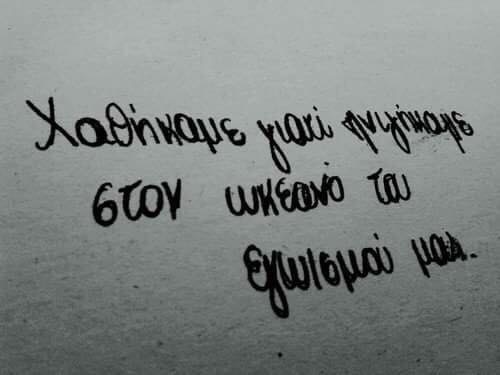 Χαθήκαμε γιατί πνιγήκαμε
στον ωκεανό του
εγωισμού μας.